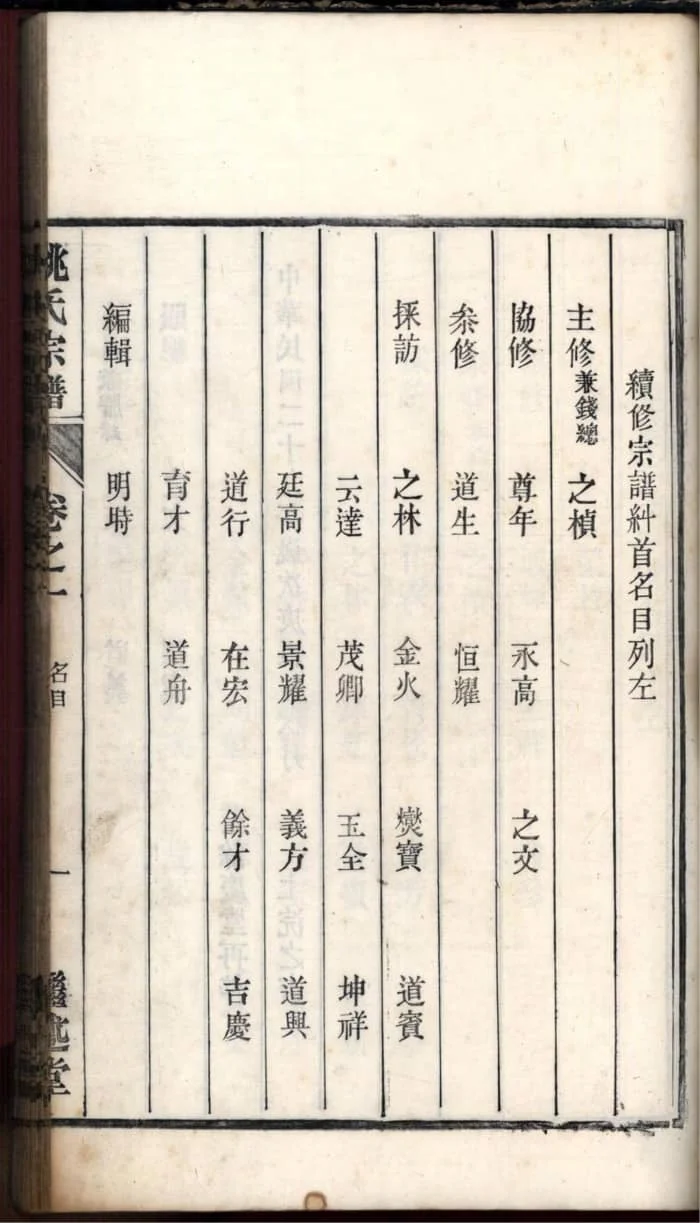 續修宗譜糾首名目列左
主修兼錢總 之楨
協修 尊年 永高 之文
叅修 道生 恒耀
採訪 之林 金火 爕寶 道賓
云達 茂卿 玉全 坤祥
廷高 景耀 義方 道興
道行 在宏 餘才 吉慶
育才 道舟
編輯 明時
姚氏宗譜 卷之一 名目 一 繼述堂